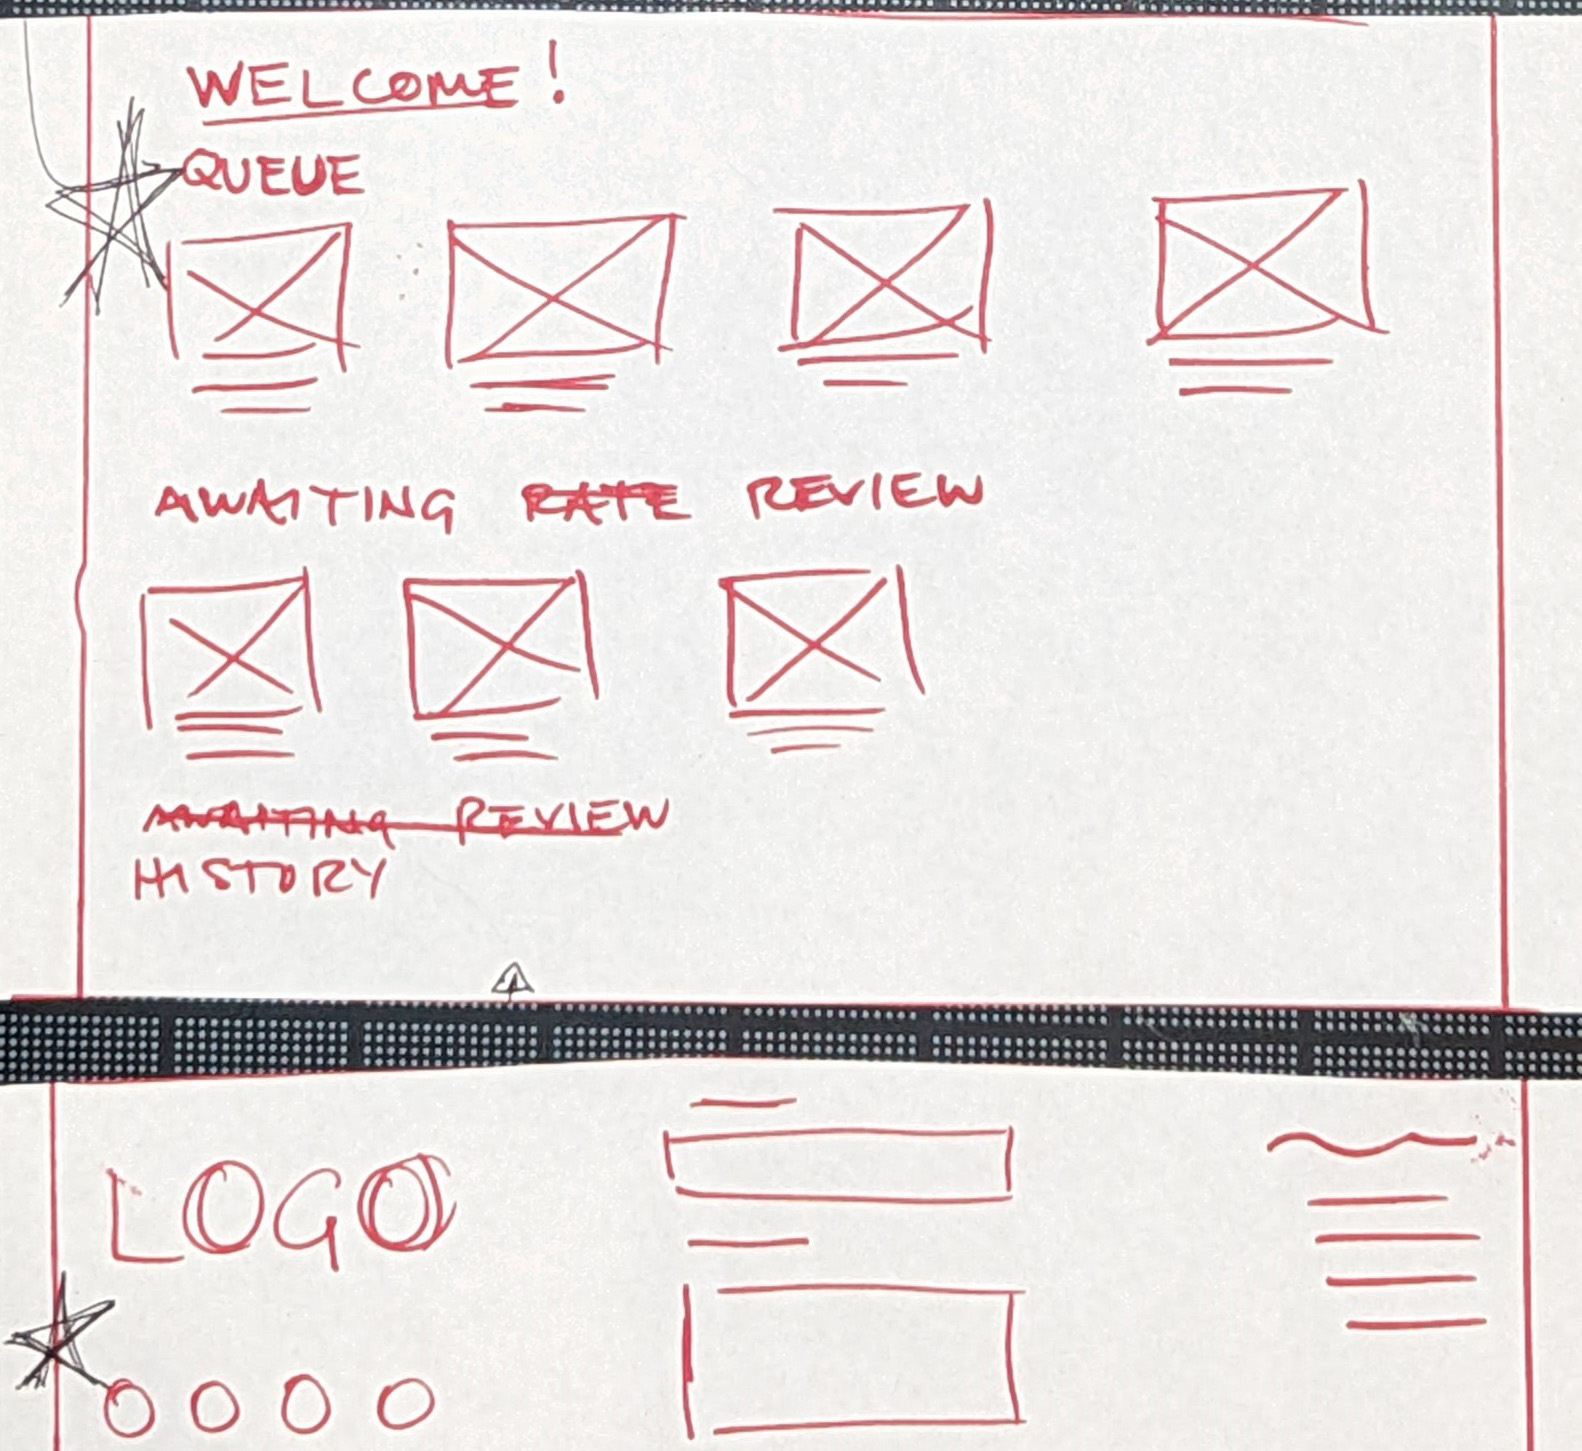 WELCOME!
QUEUE
AWAITING RATE REVIEW
AWAITING REVIEW
HISTORY
LOGO